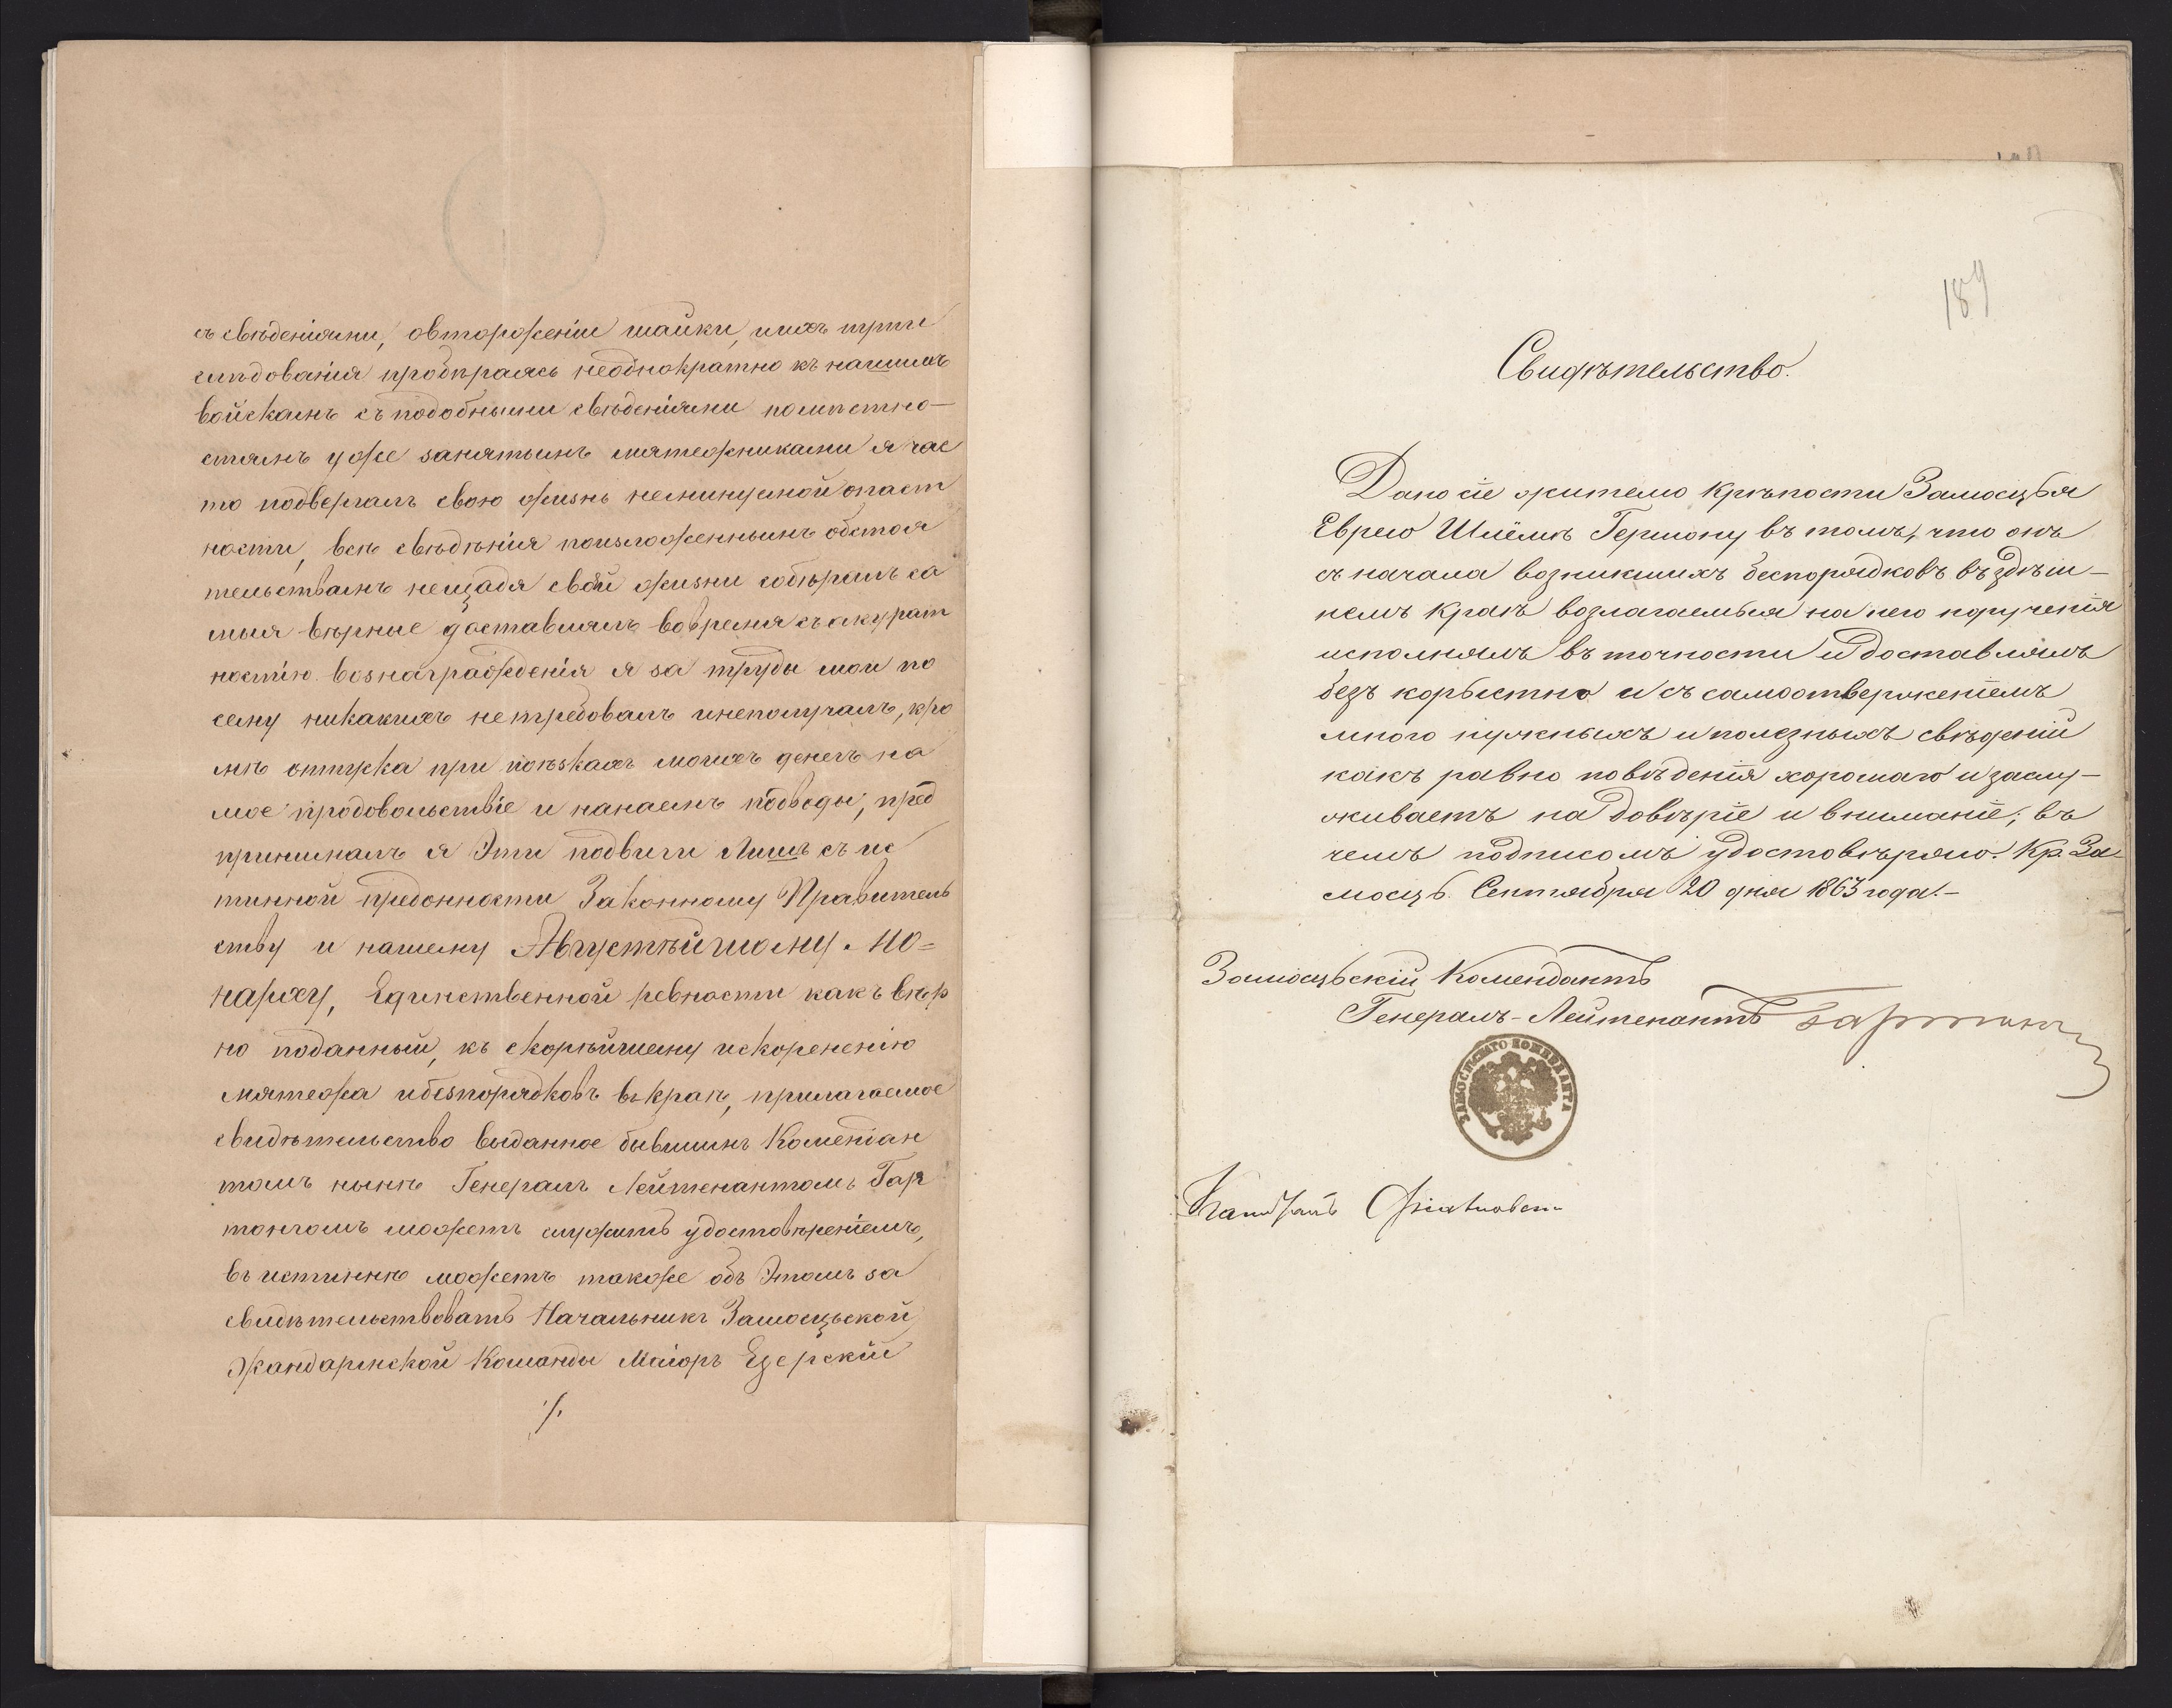 съ свѣденіями, овторженіи шайки, ихъ при
слѣдованія пробираясь неоднократно къ нашимъ
войскамъ съ подобными свѣденіями помѣстно-
стямъ уже занятымъ мятежниками я час
то подвергалъ свою жизнь неминуемой опаст
ности, всѣ свѣдѣнія поизложеннымъ обстоя
тельствамъ нещадя свой жизни собѣралъ са
мыя вѣрные доставлялъ вовремя съ акурат
ностію вознагражденія я за труды мои по
сему никакихъ нетребовалъ инеполучалъ, кро
мѣ отпуска при поѣзкахъ моихъ денегъ на
мое продовольствіе и нанаемъ подводы, пред
принималъ я Эти подвиги Лишь съ ис
тинной преданности Законному Правитель
ству и нашему Августѣйшому Мо=
нарху, Единственной ревности какъ вѣр
но поданный, къ скорѣйшему искоренению
мятежа ибезпорядковъ въ краѣ, прилагаемое
свидѣтельство выданное бывшимъ Комендан
томъ нынѣ Генералъ Лейтенантомъ Гар
тонгомъ можетъ служить удостовѣреніемъ,
въ истиннѣ можетъ также объ Этомъ за
свидѣтельствовать Начальникъ Замосцьской
Жандармской Команды Маіоръ Езерскій
./.
189
Свидѣтельство.
Дано сіе жителю крѣпости Замосцья
Еврею Шлёмѣ Гершону въ томъ, что онъ
съ начала возникшихъ беспорядковъ въ здѣш-
немъ краѣ возлагаемыя на него порученія
исполнялъ въ точности и доставлялъ
безъ корыстно и съ самоотверженіемъ
много нужныхъ и полезныхъ свѣденій
какъ равно поведенія хорошаго и заслу-
живаетъ на довѣріе и вниманіе; въ
чемъ подписомъ удостовѣряю. Кр. За-
мосць. Сентября 20 дня 1863 года.-
Замосцьскій Комендантъ
Генералъ-Лейтенантъ Гартонгъ
ЗАМОСЬСКАГО КОМЕНДАНТА